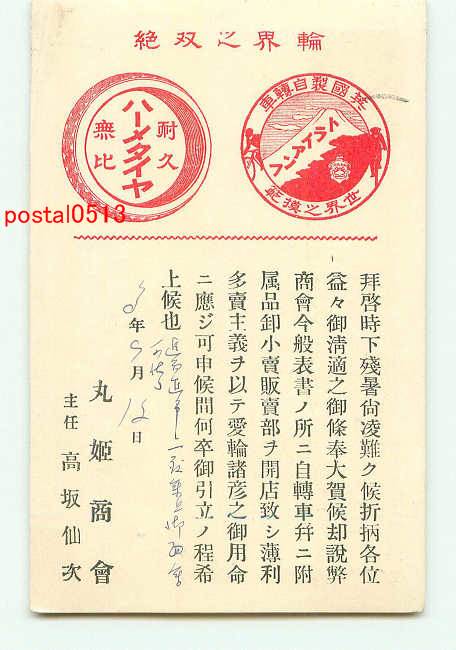 輪界之双絶
英國製自轉車
トライアンフ
世界之模範
ハーメタイヤ
耐久
無比
postal0513
拜啓時下殘暑尙凌難ク候折柄各位
益々御淸適之御條奉大賀候却說弊
商會今般表書ノ所ニ自轉車幷ニ附
属品卸小賣販賣部ヲ開店致シ薄利
多賣主義ヲ以テ愛輪諸彦之御用命
ニ應ジ可申候間何卒御引立ノ程希
上候也
年 月 日
丸姬商會
主任 高坂仙次